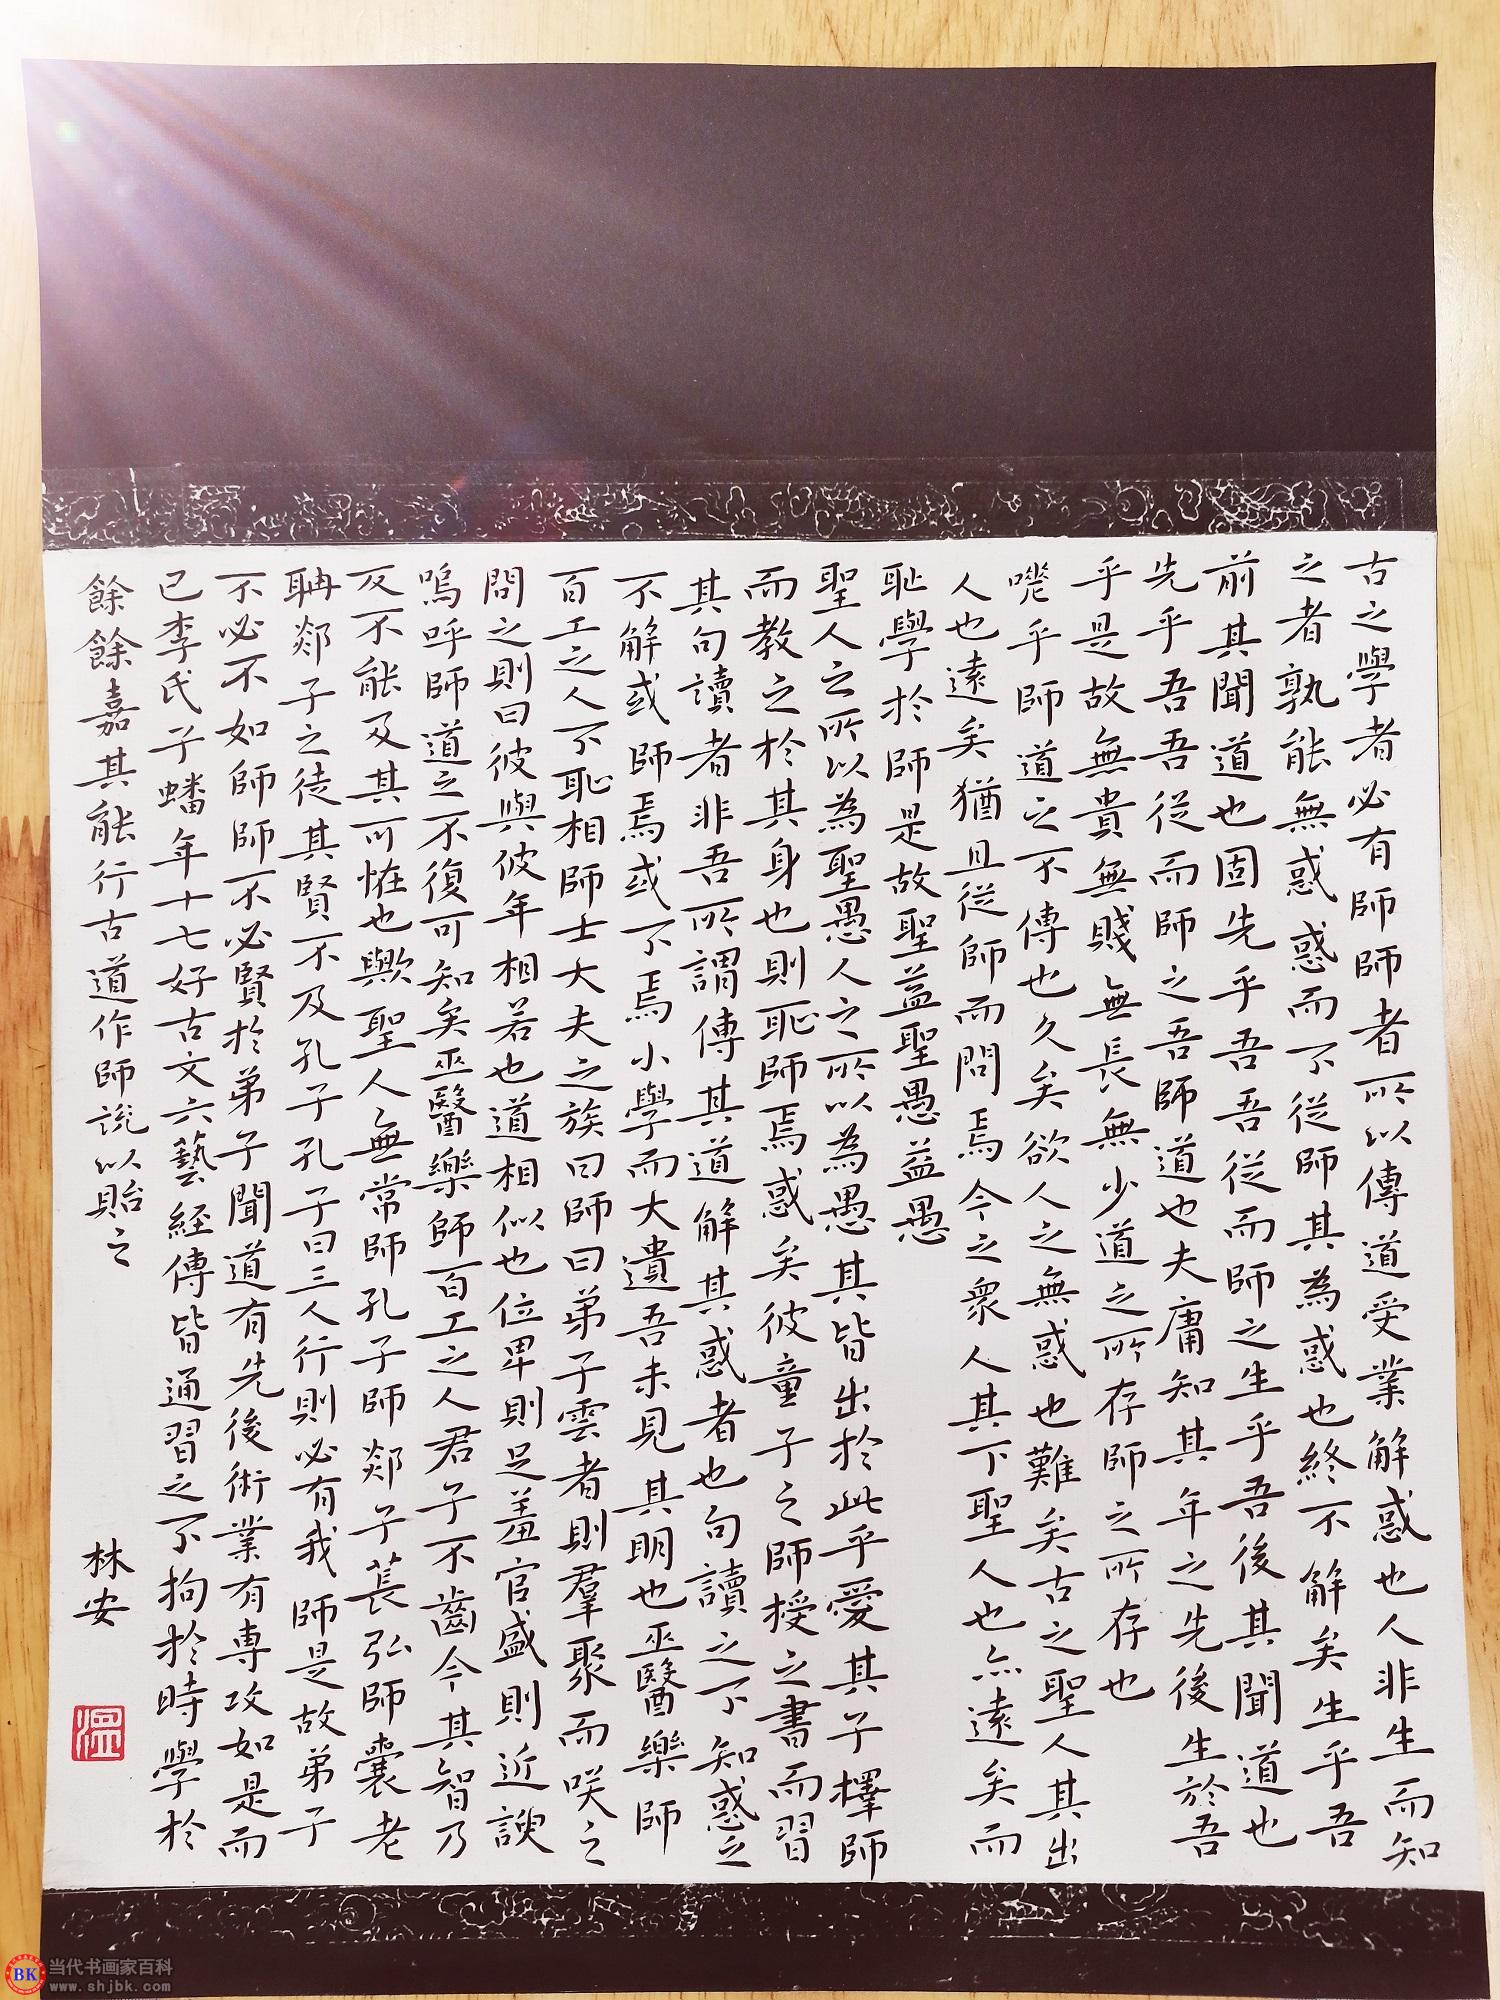 古之學者必有師師者所以傳道受業解惑也人非生而知
之者孰能無惑惑而不從師其為惑也終不解矣生乎吾
前其聞道也固先乎吾吾從而師之生乎吾後其聞道也
先乎吾吾從而師之吾師道也夫庸知其年之先後生於吾
乎是故無貴無賤無長無少道之所存師之所存也
嗟乎師道之不傳也久矣欲人之無惑也難矣古之聖人其出
人也遠矣猶且從師而問焉今之眾人其下聖人也亦遠矣而
恥學於師是故聖益聖愚益愚
聖人之所以為聖愚人之所以為愚其皆出於此乎愛其子擇師
而教之於其身也則恥師焉惑矣彼童子之師授之書而習
其句讀者非吾所謂傳其道解其惑者也句讀之不知惑之
不解或師焉或不焉小學而大遺吾未見其明也巫醫樂師
百工之人不恥相師士大夫之族曰師曰弟子雲者則羣聚而咲之
問之則曰彼與彼年相若也道相似也位卑則足羞官盛則近諛
嗚呼師道之不復可知矣巫醫樂師百工之人君子不齒今其智乃
反不能及其可怪也歟聖人無常師孔子師郯子萇弘師襄老
聃郯子之徒其賢不及孔子孔子曰三人行則必有我師是故弟子
不必不如師師不必賢於弟子聞道有先後術業有專攻如是而
已李氏子蟠年十七好古文六藝經傳皆通習之不拘於時學於
餘餘嘉其能行古道作師說以貽之
林安
溫
BK 当代书画家百科
www.shjbk.com